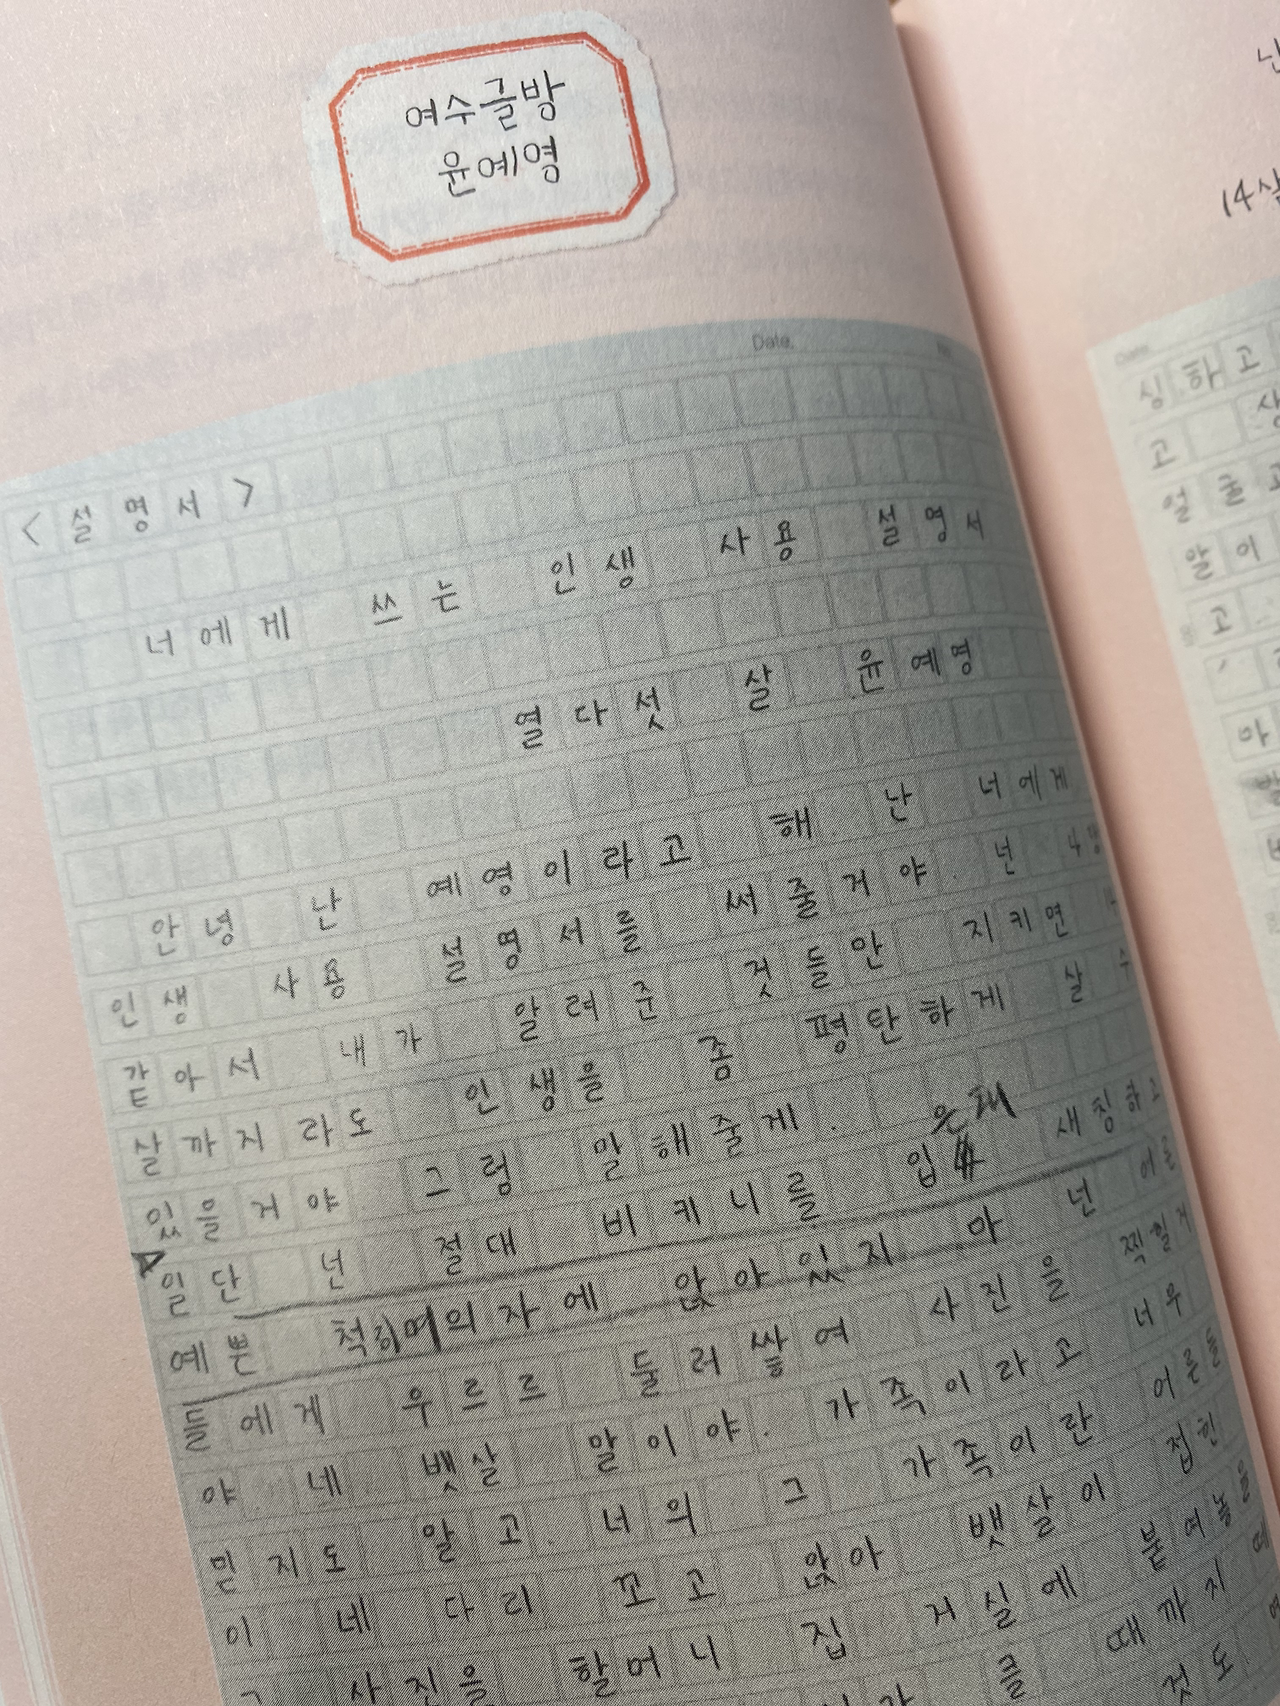 여수글방
윤예영
Date.
<설명서>
너에게 쓰는 인생 사용 설명서
열다섯 살 윤예영
안녕 난 예영이라고 해 난 너에게
인생 사용 설명서를 써줄거야. 넌 나랑
같아서 내가 알려준 것들만 지키면
살까지라도 인생을 좀 평탄하게 살 수
있을거야 그럼 말해줄게.
일단 넌 절대 비키니를 입은채 새침하고
예쁜 척하며 의자에 앉아있지 마 넌 어른
들에게 우르르 둘러쌓여 사진을 찍힐거
야 네 뱃살 말이야. 가족이라고 너무
믿지도 말고. 너의 그 가족이란 어른들
이 네 다리 꼬고 앉아 뱃살이 접힌
사진을 할머니 집 거실에 붙여놓을
클 때까지
것도
14살
Date.
싱하고
고
알이
고.